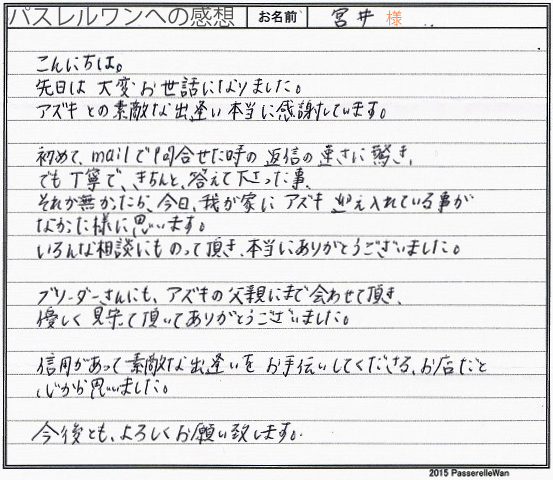 パスレルワンへの感想 お名前 宮井 様
こんにちは。
先日は 大変お世話になりました。
アズキとの素敵な出逢い本当に感謝しています。
初めて、mailで問合せた時の返信の速さに驚き、
でも丁寧で、きちんと、答えて下さった事、
それが無かったら、今日、我が家に アズキ 迎え入れている事が
なかった様に思います。
いろんな相談にものって頂き、本当にありがとうございました。
ブリーダーさんにも、アズキの父親にまで会わせて頂き、
優しく見守て頂いてありがとうございました。
信用があって素敵な出逢いを お手伝いしてくださる、お店だと
心から思いました。
今後とも、よろしくお願い致します。
2015 PasserelleWan